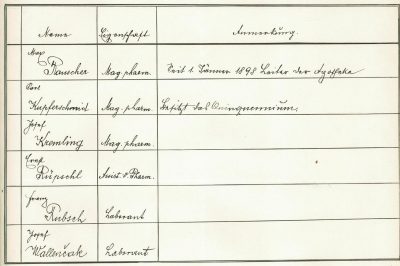 Name Eigenschaft Anmerkung.
Max
Rauscher Mag. pharm. Seit 1. Jänner 1898 Leiter der Apotheke
Carl
Kupferschmid Mag. pharm. Besitzt das Quinquennium.
Josef
Kremling Mag. pharm.
Rüpschl Pharm.
Franz
Rubsch Laborant
Josef
Wallenčak Laborant